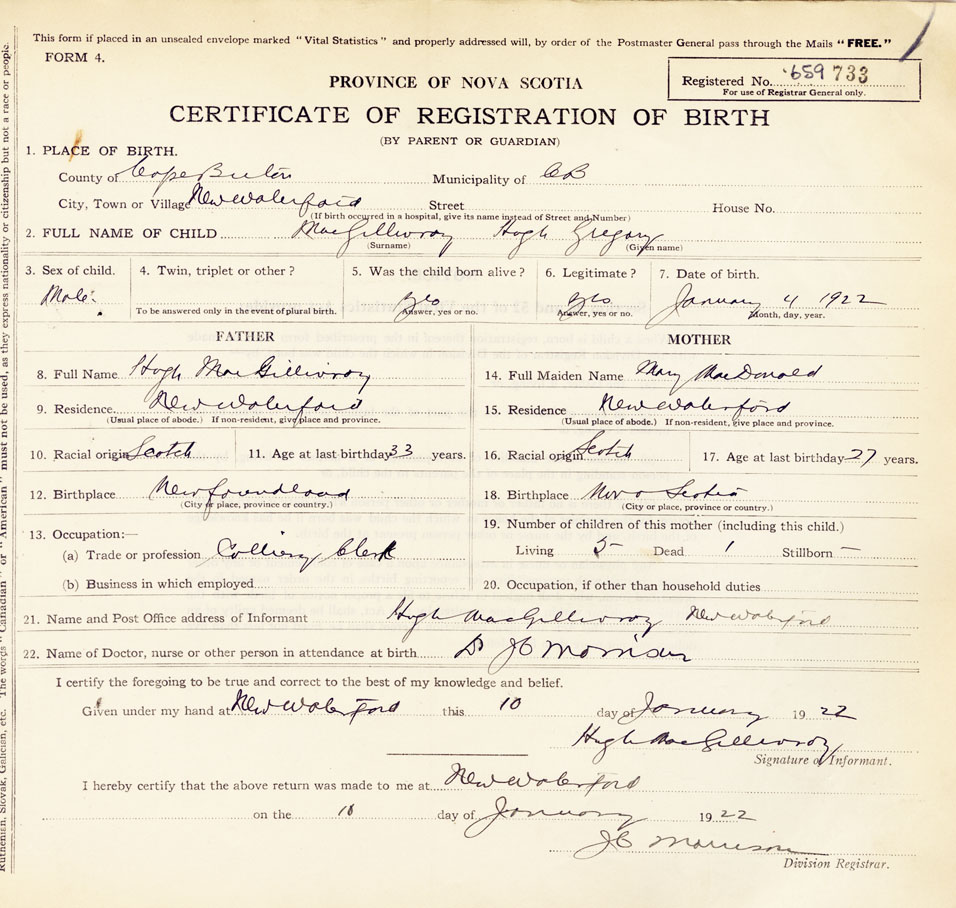 This form if placed in an unsealed envelope marked "Vital Statistics" and properly addressed will, by order of the Postmaster General pass through the Mails "FREE."
FORM 4.
PROVINCE OF NOVA SCOTIA
Registered No. 659733
For use of Registrar General only.
CERTIFICATE OF REGISTRATION OF BIRTH
(BY PARENT OR GUARDIAN)
1. PLACE OF BIRTH.
County of Cape Breton Municipality of CB
City, Town or Village New Waterford Street House No.
(If birth occurred in a hospital, give its name instead of Street and Number)
2. FULL NAME OF CHILD MacGillivray Hugh Gregory
(Surname) (Given name)
3. Sex of child. 4. Twin, triplet or other? 5. Was the child born alive? 6. Legitimate? 7. Date of birth.
Male. yes yes January 4 1922
To be answered only in the event of plural birth. Answer, yes or no. Answer, yes or no. Month, day, year.
FATHER MOTHER
8. Full Name Hugh MacGillivray 14. Full Maiden Name Mary MacDonald
9. Residence New Waterford 15. Residence New Waterford
(Usual place of abode.) If non-resident, give place and province. (Usual place of abode.) If non-resident, give place and province.
10. Racial origin Scotch 11. Age at last birthday 33 years. 16. Racial origin Scotch 17. Age at last birthday 27 years.
12. Birthplace Newfoundland 18. Birthplace Nova Scotia
(City or place, province or country.) (City or place, province or country.)
13. Occupation:— 19. Number of children of this mother (including this child.)
(a) Trade or profession Colliery Clerk Living 5 Dead 1 Stillborn —
(b) Business in which employed 20. Occupation, if other than household duties
21. Name and Post Office address of Informant Hugh MacGillivray New Waterford
22. Name of Doctor, nurse or other person in attendance at birth Dr JC Morrison
I certify the foregoing to be true and correct to the best of my knowledge and belief.
Given under my hand at New Waterford this 10 day of January 1922
Hugh MacGillivray
Signature of Informant.
I hereby certify that the above return was made to me at New Waterford
on the 10 day of January 1922
JC Morrison
Division Registrar.
Ruthenian, Slovak, Galician, etc. The words "Canadian" or "American" must not be used, as they express nationality or citizenship but not a race or people.